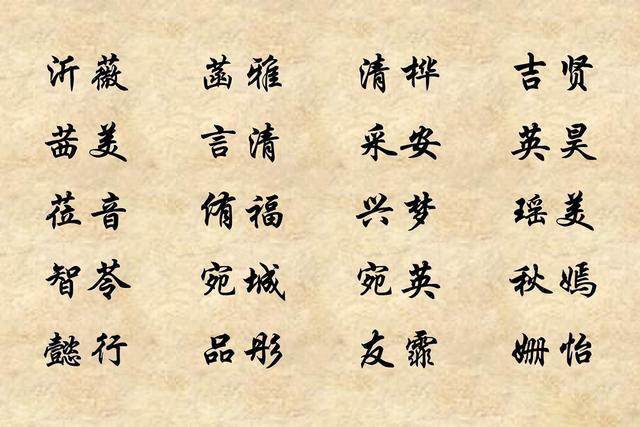 沂薇 菡雅 清桦 吉贤
茜美 言清 采安 英昊
莅音 侑福 兴梦 瑶美
智苓 宛城 宛英 秋嫣
懿行 品彤 友霏 姗怡